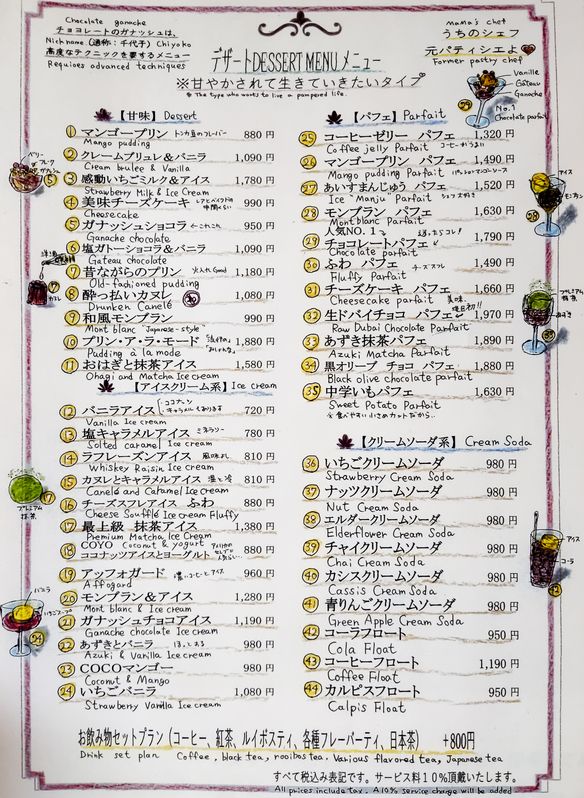 Chocolate ganache
チョコレートのガナッシュは、
Nickname (通称:千代子) Chiyoko
高度なテクニックを要するメニュー
Requioes advanced techniques
MaMa's chef
うちのシェフ
元パティシエよ
Former pastry chef
Vanille
Gâteau
Ganache
No.1
Chocolate parfait
デザートDESSERT MENUメニュー
※甘やかされて生きていきたいタイプ
※ The type who wants to live a pampered life.
【甘味】Dessert
① マンゴープリン トンカ豆のフレーバー 880円
Mango pudding
② クレームブリュレ&バニラ 1,090円
Cream brulee & Vanilla
③ 感動いちごミルク&アイス 1,780円
Strawberry Milk & Ice Cream
④ 美味チーズケーキ 990円
Cheesecake
⑤ ガナッシュショコラ 950円
Ganache chocolate
⑥ 塩ガトーショコラ&バニラ 1,090円
Gateau chocolate
⑦ 昔ながらのプリン 火入れGood 1,180円
Old-fashioned pudding
⑧ 酔っ払いカヌレ 1,080円
Drunken Canelé
⑨ 和風モンブラン 990円
Mont blanc Japanese-style
⑩ プリン・ア・ラ・モード 1,880円
Pudding à la mode
⑪ おはぎと抹茶アイス 1,580円
Ohagi and Matcha Ice cream
【アイスクリーム系】Ice cream
⑫ バニラアイス ココナッツ キャラメルもあります 720円
Vanilla Ice cream
⑬ 塩キャラメルアイス ミネラリー 780円
Salted caramel Ice cream
⑭ ラフレーズンアイス 風味よし 810円
Whiskey Raisin Ice cream
⑮ カヌレとキャラメルアイス 温と冷 810円
Canelé and Caramel Ice cream
⑯ チーズスフレアイス ふわ 880円
Cheese Soufflé Ice cream Fluffy
⑰ 最上級 抹茶アイス 1,380円
Premium Matcha Ice cream
⑱ COYO Coconut & yogurt
ココナッツアイスとヨーグルト 880円
⑲ アッフォガード 濃いコーヒーとアイス 960円
Affogard
⑳ モンブラン&アイス 1,280円
Mont blanc & Ice cream
㉑ ガナッシュチョコアイス 1,190円
Ganache chocolate Ice cream
㉒ あずきとバニラ ほっとする 980円
Azuki & Vanilla Ice cream
㉓ COCOマンゴー 980円
Coconut & Mango
㉔ いちごバニラ 1,080円
Strawberry Vanilla Ice cream
【パフェ】Parfait
㉕ コーヒーゼリー パフェ 1,320円
Coffee jelly Parfait コーヒーがうまい
㉖ マンゴープリン パフェ 1,490円
Mango pudding Parfait パッションマンゴーソース
㉗ あいすまんじゅう パフェ 1,520円
Ice "Manju" Parfait シェフ大好き
㉘ モンブラン パフェ 1,630円
Mont blanc Parfait
人気NO.1
㉙ チョコレートパフェ 1,790円
Chocolate parfait
㉚ ふわ パフェ チーズスフレ 1,490円
Fluffy Parfait
㉛ チーズケーキ パフェ 1,660円
Cheesecake parfait 美味
㉜ 生ドバイチョコ パフェ 1,970円
Raw Dubai Chocolate Parfait
㉝ あずき抹茶パフェ 1,890円
Azuki Matcha Parfait
㉞ 黒オリーブ チョコ パフェ 1,880円
Black olive chocolate parfait
㉟ 中学いもパフェ 1,630円
Sweet Potato Parfait
※食べやすい小さめカットだから。
【クリームソーダ系】Cream Soda
㊱ いちごクリームソーダ 980円
Strawberry Cream Soda
㊲ ナッツクリームソーダ 980円
Nut Cream Soda
㊳ エルダークリームソーダ 980円
Elderflower Cream Soda
㊴ チャイクリームソーダ 980円
Chai Cream Soda
㊵ カシスクリームソーダ 980円
Cassis Cream Soda
㊶ 青りんごクリームソーダ 980円
Green Apple Cream Soda
㊷ コーラフロート 950円
Cola Float
㊸ コーヒーフロート 1,190円
Coffee Float
㊹ カルピスフロート 950円
Calpis Float
お飲み物セットプラン(コーヒー、紅茶、ルイボスティ、各種フレーバーティ、日本茶) +800円
Drink set plan Coffee, black tea, rooibos tea, Various flavored tea, Japanese tea
すべて税込み表記です。サービス料10%頂戴いたします。
All prices include tax. A 10% service charge will be added